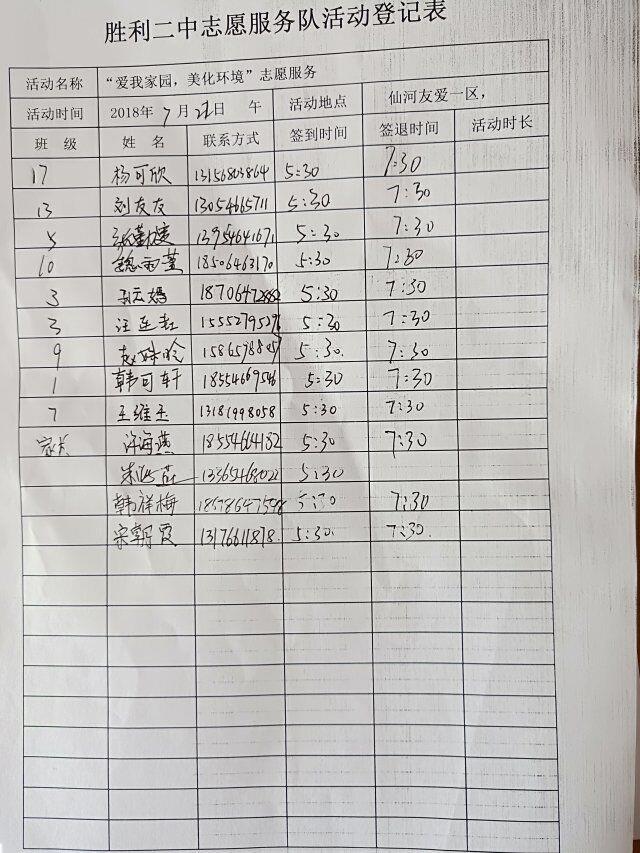 胜利二中志愿服务队活动登记表
活动名称 “爱我家园，美化环境”志愿服务
活动时间 2018年 7 月 日 午 活动地点 仙河友爱一区，
班 级 姓 名 联系方式 签到时间 签退时间 活动时长
17 杨可欣 13156803864 5:30 7:30
13 刘友友 13054665711 5:30 7:30
5 13954641671 5:30 7:30
10 18506463170 5:30 7:30
3 5:30 7:30
3 5:30 7:30
9 5:30. 7:30
1 韩可轩 18554669546 5:30 7:30
7 王维玉 13181998058 5:30 7:30
家长 许海燕 18554664182 5:30 7:30
5:30
韩祥梅 7:30
宋朝霞 13176611878 5:30. 7:30.